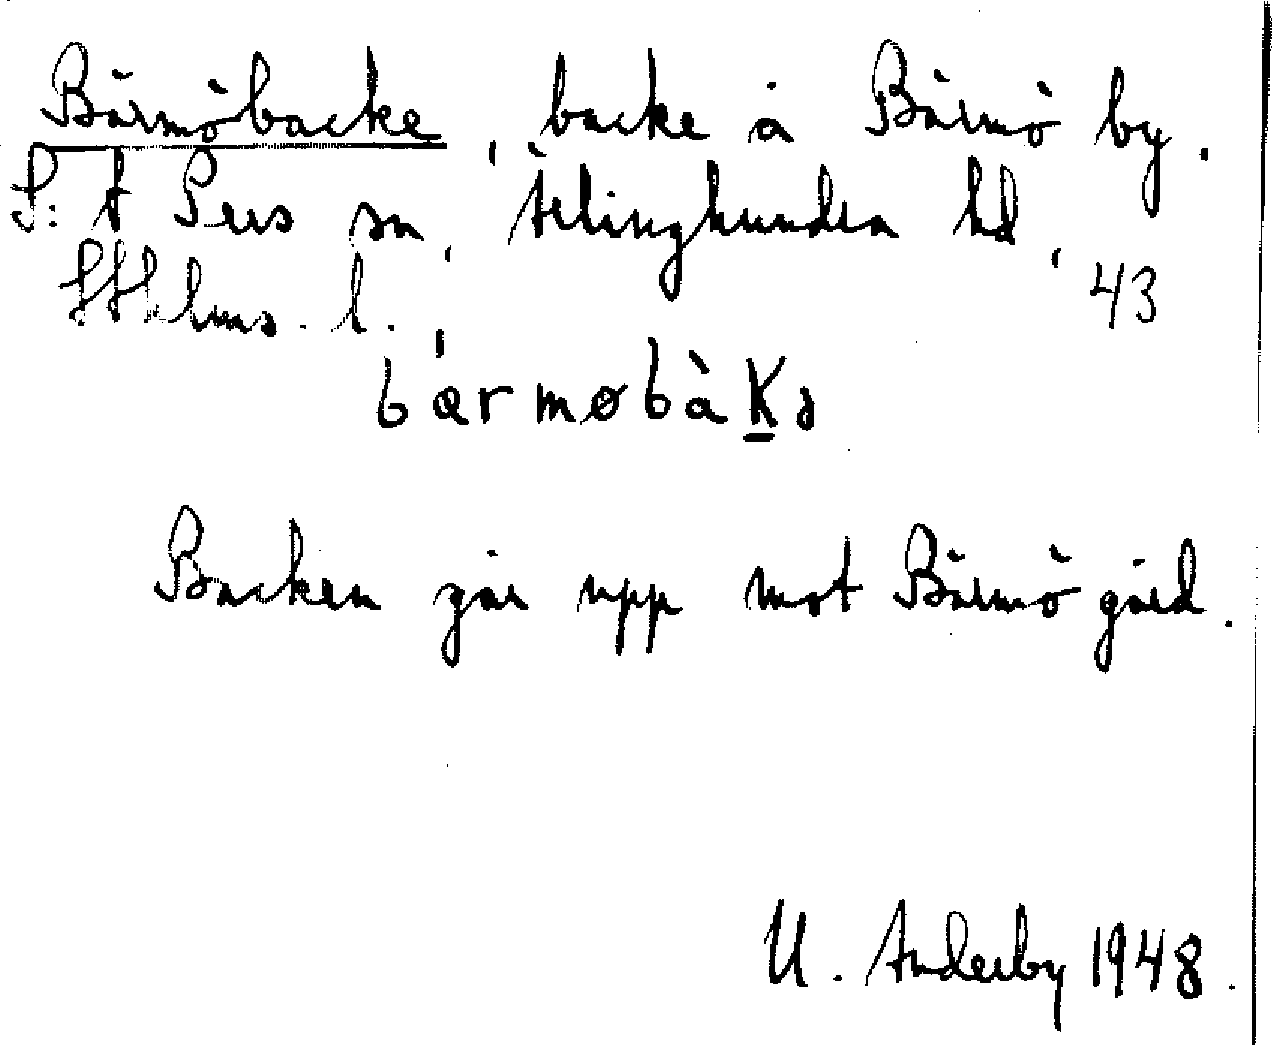 Bärmöbacke, backe å Bärmö by.
S:t Pers sn, Ärlinghundra hd,
Sthlms. l. 43
bármøbàKə
Backen går upp mot Bärmö gård.
U. Anderby 1948.